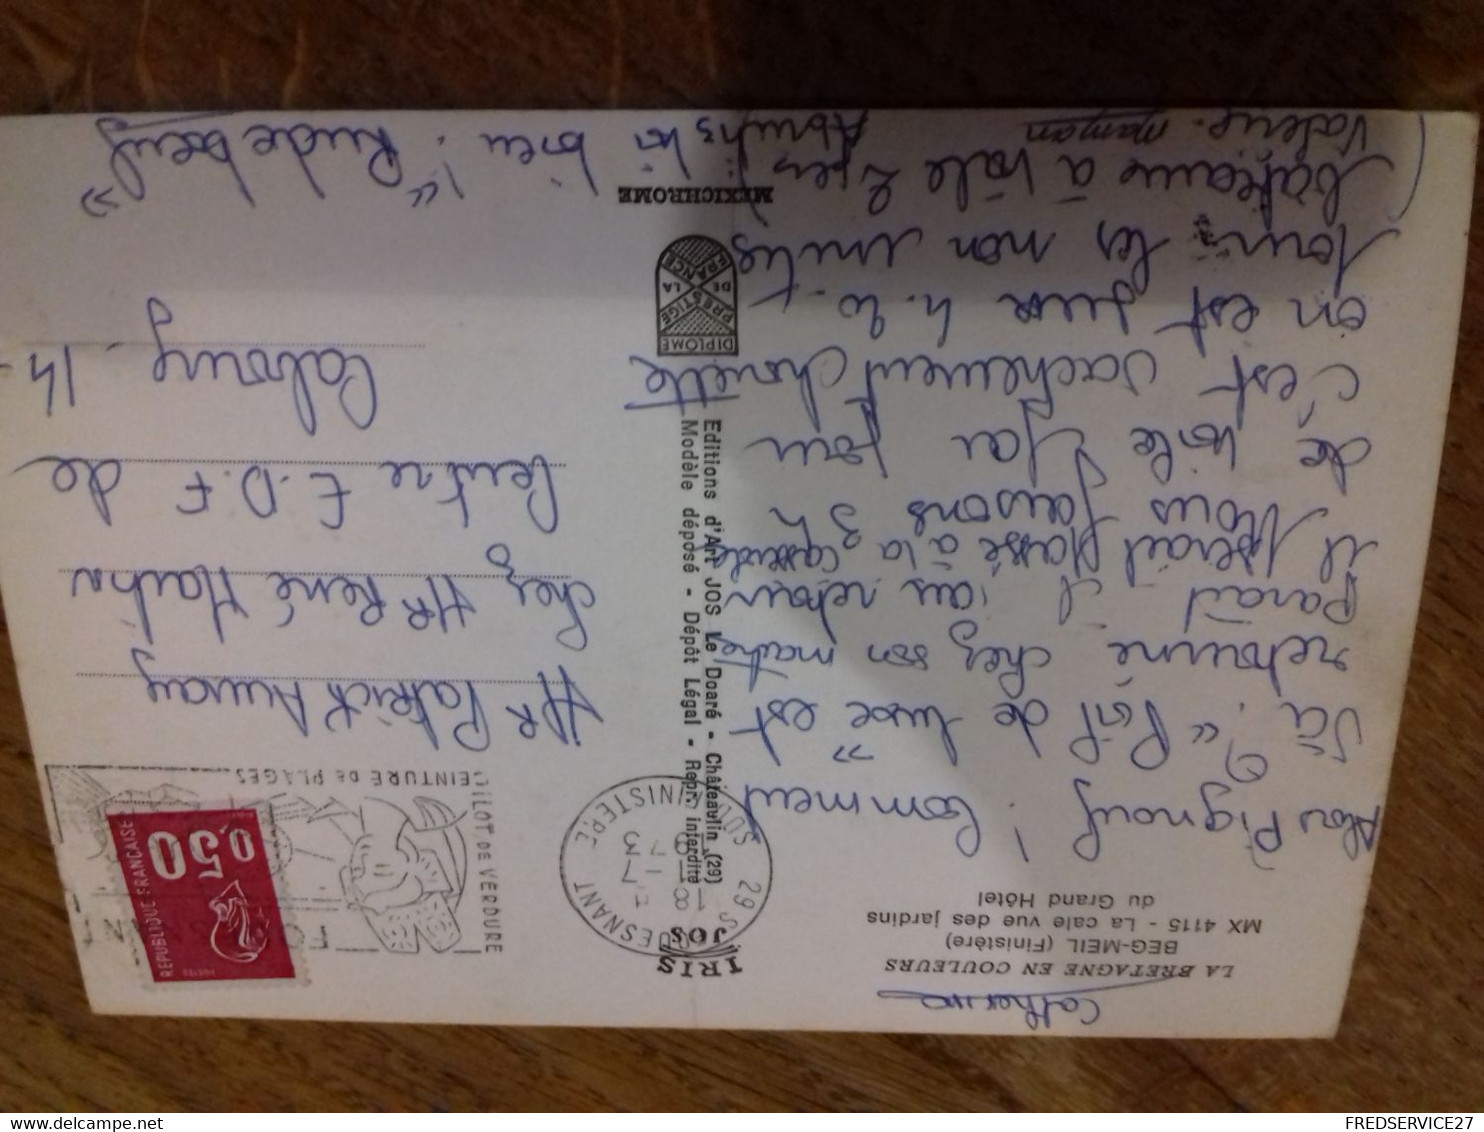 Catherine
LA BRETAGNE EN COULEURS
BEG-MEIL (Finistère)
MX 4115 - La cale vue des jardins
du Grand Hôtel
Alors Pignouf ! Comment
va. "Poil de luxe" est
retourné chez son maître,
Paraît il, au retour
il serait passé à la casserole
Nous faisons 3h
de voile / par jour
c'est vachement chouette
on est sur 4.20. +
pour les non initiés
(bateaux à voile 2 pers)
Valérie. maman
IRIS
JOS
Editions d'Art JOS Le Doaré - Châteaulin (29)
Modèle déposé - Dépôt Légal - Repr. interdite
DIPLOME
PRESTIGE
DE LA
FRANCE
MEXICHROME
29 S FOUESNANT
18 H
2-7
1973
SUD FINISTERE
ILOT DE VERDURE
CEINTURE DE PLAGES
REPUBLIQUE FRANCAISE
0,50
POSTES
Mr Patrick Auvray
chez Mr René
Centre E.D.F de
Cabourg. 14
bien ! "Rudeboeuf"
FREDSERVICE27